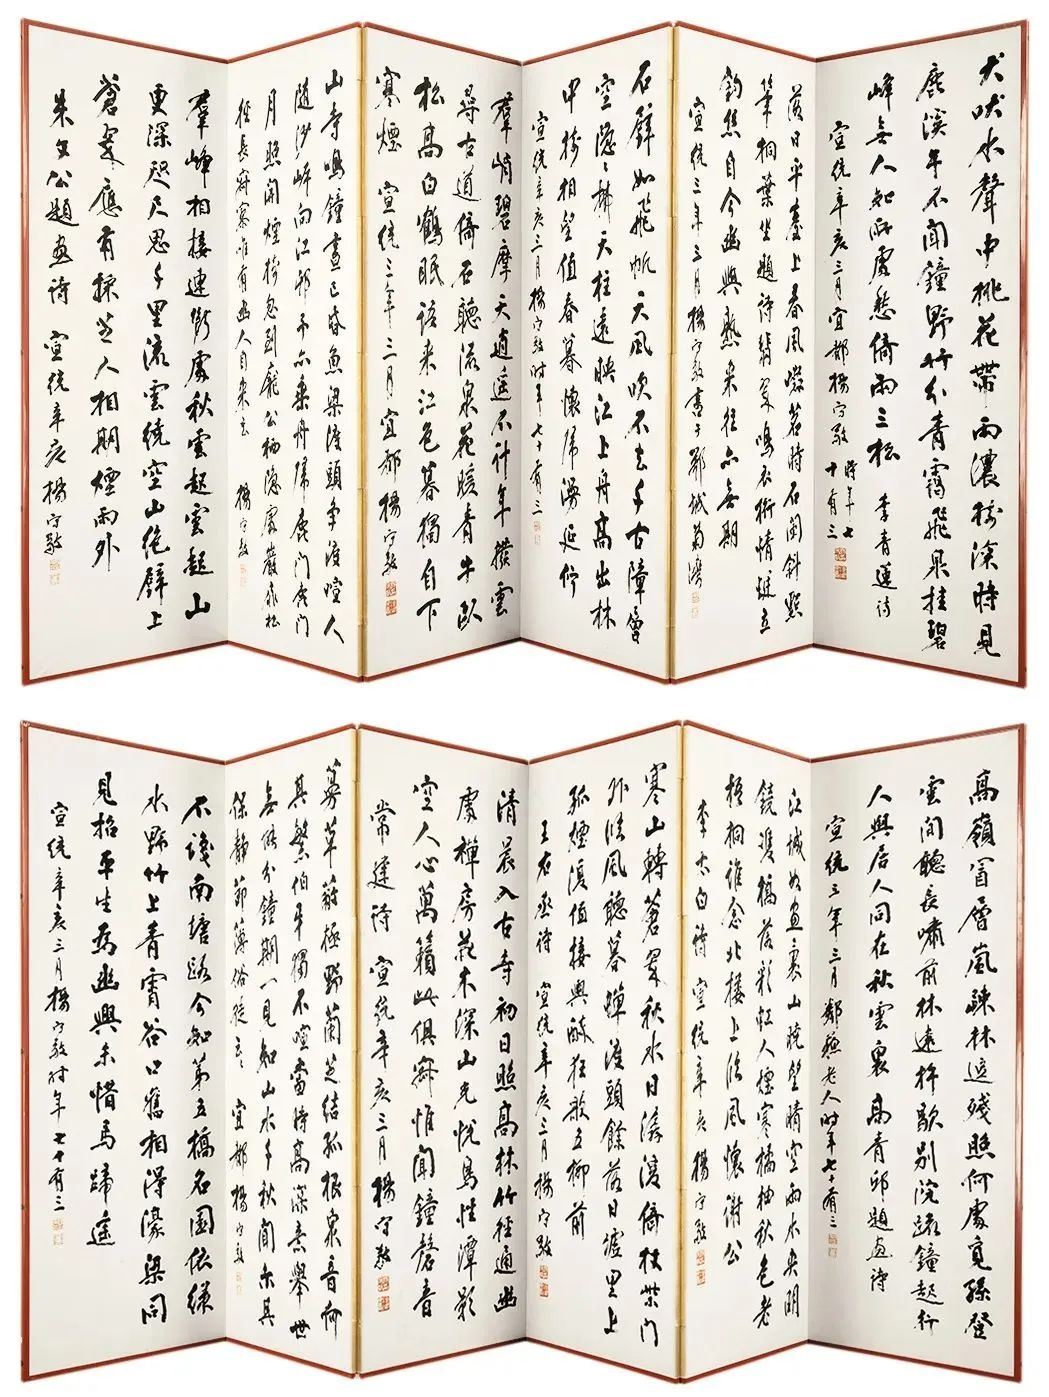 犬吠水聲中桃花帶雨濃樹深時見
鹿溪午不聞鐘野竹分青靄飛泉挂碧
峰無人知所處愁倚兩三松 李青蓮詩
宣統辛亥三月宜都楊守敬時年七十有三
落日平臺上春風啜茗時石闌斜點
筆桐葉坐題詩翡翠鳴衣桁蜻蜓立
釣絲自今幽興熟來往亦無期
宣統三年三月楊守敬書于鄂城菊灣
石壁如飛帆天風吹不去千古障層
空隱隱拂天柱遠映江上舟高出林
中樹相望值春暮懷歸漫延佇
宣統辛亥三月楊守敬時年七十有三
羣峭碧摩天逍遙不計年撥雲
尋古道倚石聽流泉花暖青牛臥
松高白鶴眠語來江色暮獨自下
寒煙 宣統三年三月宜都楊守敬
山寺鳴鐘晝已昏魚梁渡頭爭渡喧人
隨沙岸向江邨予亦乘舟歸鹿門鹿門
月照開煙樹忽到龐公栖隱處巖扉松
徑長寂寥惟有幽人自來去 楊守敬
羣峰相接連斷處秋雲起雲起山
更深咫尺思千里流雲繞空山絕壁上
蒼翠應有採芝人相期煙雨外
朱文公題畫詩 宣統辛亥楊守敬
高嶺冒層嵐疎林逗殘照何處覓孫登
雲間聽長嘯前林遠歌別鐘起行
人與居人同在秋雲裏 高青邱題畫詩
宣統三年三月鄰蘇老人時年七十有三
江城如畫裏山曉望晴空兩水夾明
鏡雙橋落彩虹人煙寒橘柚秋色老
梧桐誰念北樓上臨風懷謝公
李太白詩 宣統辛亥楊守敬
寒山轉蒼翠秋水日潺湲倚杖柴門
外臨風聽暮蟬渡頭餘落日墟里上
孤煙復值接輿醉狂歌五柳前
王右丞詩 宣統辛亥三月楊守敬
清晨入古寺初日照高林竹徑通幽
處禪房花木深山光悅鳥性潭影
空人心萬籟此俱寂惟聞鐘磬音
常建詩 宣統辛亥三月楊守敬
蔓草蔽極野蘭芝結孤根眾音何
其繁伯牙獨不喧當時高深意舉世
無能分鐘期一見知山水千秋聞尔其
保靜節薄俗徒云云 宜都楊守敬
不識南塘路今知第五橋名園依綠
水野竹上青霄谷口舊相得濠梁同
見招平生為幽興未惜馬蹄遙
宣統辛亥三月楊守敬時年七十有三